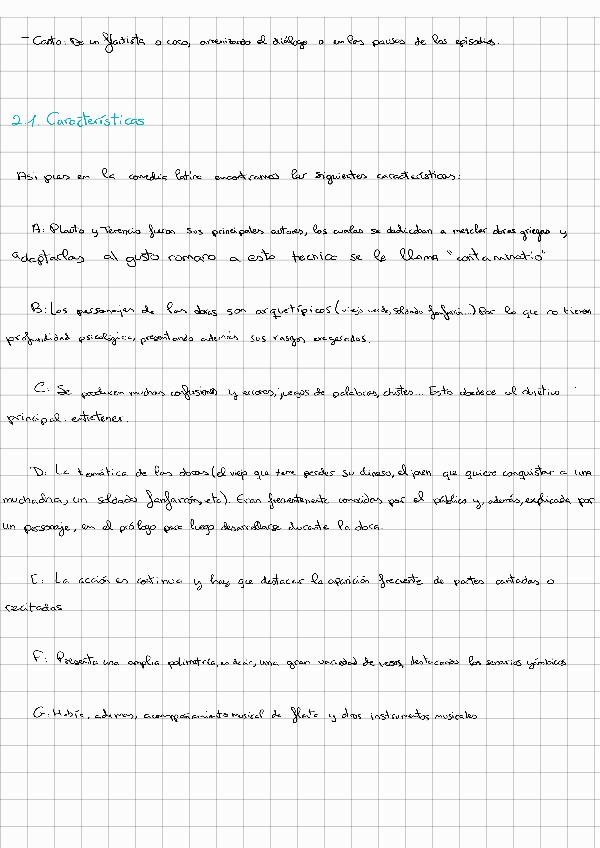 - Canto: De un flautista o coro, amenizando el diálogo o en las pausas de los episodios.
2.1. Características
Así pues en la comedia latina encontramos las siguientes características:
A: Plauto y Terencio fueron sus principales autores, los cuales se dedicaban a mezclar obras griegas y
adaptarlas al gusto romano a esta tecnica se le llama "contaminatio"
B: Los personajes de las obras son arquetípicos (viejo verde, soldado fanfarrón...) Por lo que no tienen
profundidad psicológica, presentando además sus rasgos exagerados.
C: Se producen muchas confusiones y errores, juegos de palabras, chistes... Esto obedece al objetivo
principal: entretener.
D: La temática de las obras (el viejo que teme perder su dinero, el joven que quiere conquistar a una
muchacha, un soldado fanfarrón, etc). Eran frecuentemente conocidas por el público y, además, explicada por
un personaje, en el prólogo para luego desarrollarse durante la obra.
E: La acción es continua y hay que destacar la aparición frecuente de partes cantadas o
recitadas
F: Presenta una amplia polimetría, es decir, una gran variedad de versos, destacando los senarios yámbicos
G: Había, ademas, acompañamiento musical de flauta y otros instrumentos musicales